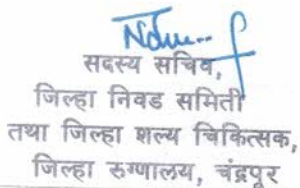 सदस्य सचिव,
जिल्हा निवड समिती
तथा जिल्हा शल्य चिकित्सक,
जिल्हा रुग्णालय, चंद्रपुर